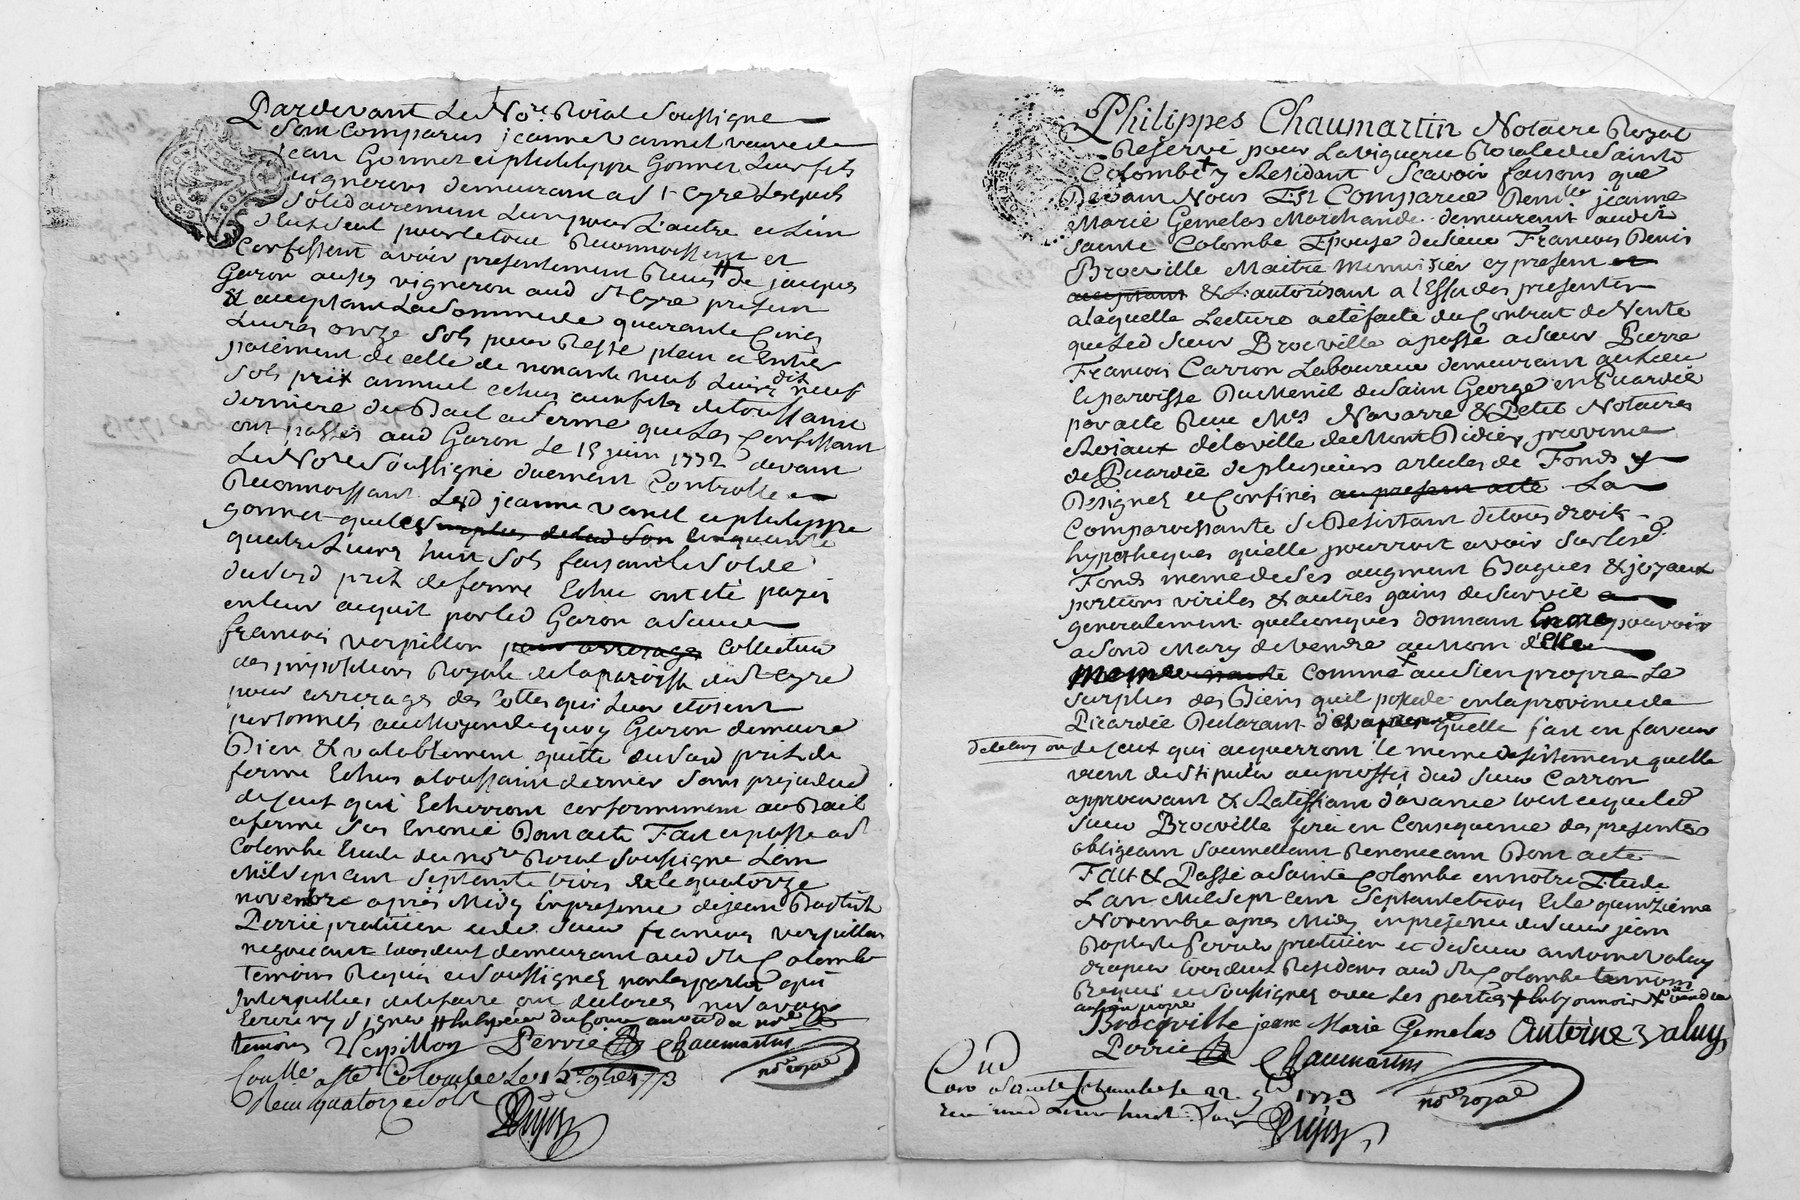 Pardevant Le No.re Roïal Soussigne
Sont Comparus jeanne Vannel veuve de
jean Gonnet et philippe Gonnet Leur fils
vignerons demeurant a St Cyre Lesquels
Solidairement Lun pour L'autre et Lun
deux Seul pour le tout Reconnoissent et
Confessent avoir presentement Reçus # de jacques
Garon aussy vigneron aud St Cyre present
& acceptant La Somme de quarante Cinq
Livres onze Sols pour Reste plein et Entier
paiement de celle de nonante neuf Livres dix neuf
Sols prix annuel echus aux fetes de toussaint
derniere du Bail a ferme que Les Confessant
ont passés aud Garon Le 15 juin 1772 devant
Le No.re Soussigné duement Controllé
Reconnoissant Lesd jeanne Vanel et philippe
gonnet que les surplus de lad Som cinquante
quatre Livres huit Sols faisant le Solde
dud prix de ferme Echu ont été payés
en leur acquit par led Garon a Sieur
francois verpillon pour arrerages Collecteur
des impositions Royale de la paroisse du St Cyre
pour arrerages des Cottes qui Leur etoient
personnels au Moyen de quoy Garon demeure
Bien & valablement quitte dud prix de
ferme Echus a toussaint dernier Sans prejudice
de ceux qui Echerront conformement au Bail
a ferme Sus Enoncé Dont acte Fait et passé a St
Colombe Etude du no.re Roïal Soussigne Lan
Mil Sept cent Septante trois & le quatorze
novembre après Midy En presence de jean Baptiste
Perrie praticien et de Sieur francois verpillon
negociant tous deux demeurant aud Ste Colombe
temoins Requis et Soussignes non les parties qui
Interpellées de le faire ont declarés ne Savoir
Ecrire ny Signer #
temoins Verpillon Perrie Chaumartin
no.re royal
Con.lle a Ste Colombe Le 1773
Reçu quatorze Sols
Philippes Chaumartin Notaire Royal
Reservé pour La viguerie Roïale de Sainte
Colombe + y Residant Scavoir faisons que
Devant Nous Est Comparue Dem.lle jeanne
Marie Gemelas Marchande demeurant audit
Sainte Colombe Epouse de Sieur Francois Denis
Brocville Maitre Menuisier cy present et
acceptant & L'autorisant a l'Effet des presentes
a laquelle Lecture a été faite du Contrat de Vente
que led Sieur Brocville a passé a Sieur Pierre
Francois Carron Laboureur demeurant au Lieu
et paroisse Dumenil de Saint George en Picardie
par acte Reçu M.es Navarre & Petit Notaires
Roïaux de la ville de Mont Didier province
de Picardie de plusieurs articles de Fonds y
Designés et Confinés au present acte La
Comparoissante Se Desistant de tous droits
hypotheques qu'elle pourroit avoir Sur lesd.
Fonds meme de Ses augment Bagues & joyaux
portions viriles & autres gains de Survie
generalement quelconques donnant pouvoir
a Sond Mary de vendre au nom d'elle
meme comme + au Sien propre Le
Surplus des Biens qu'il possede en la province de
Picardie Declarant quelle fait en faveur
de ceux qui acquerront le meme desistement quelle
vient de Stipuler au proffit dud Sieur Carron
approuvant & Ratiffiant d'avance tout ce que led
Sieur Brocville fera en Consequence des presentes
obligeant Soumettant Renonceant Dont acte
Fait & Passé a Sainte Colombe en notre Etude
L'an Mil Sept Cent Septante trois & le quinzieme
Novembre apres Midy en presence de Sieur jean
Baptiste Perrier praticien et de Sieur antoine valuy
drapier tous deux Residans aud Ste Colombe temoins
Requis et Soussignes avec Les parties +
au Sien propre
Brocqville jeane Marie Gemelas Antoine Valuy
Perrie Chaumartin
no.re royal
a Sainte Colombe le 22 1773
Reçu Livre huit Sols